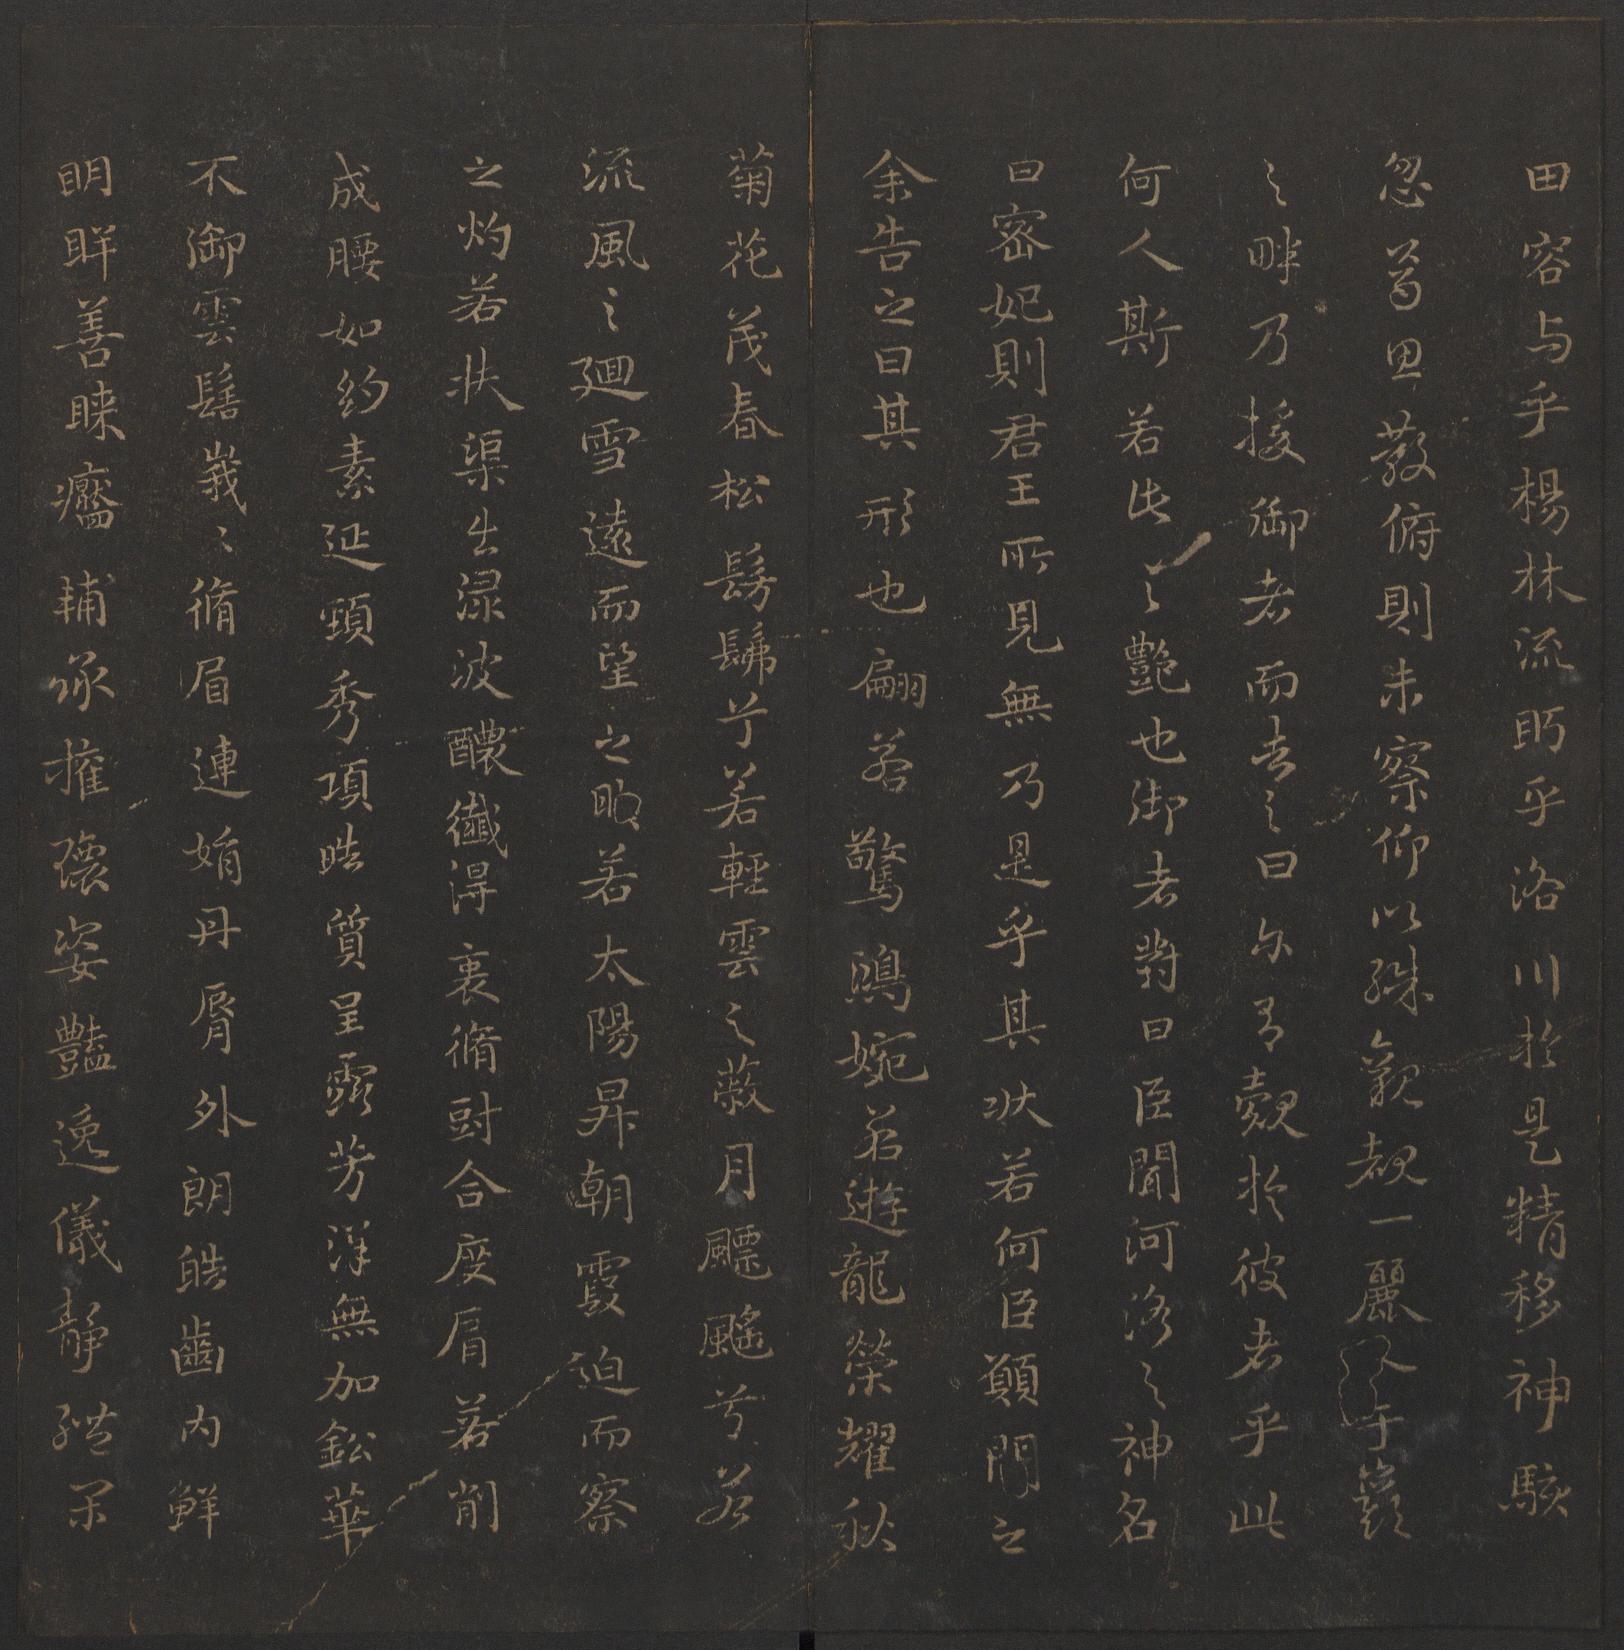 田容与乎楊林流眄乎洛川於是精移神駭
忽焉思散俯則未察仰以殊觀覩一麗人于巖
之畔乃援御者而告之曰尓有覿於彼者乎此
何人斯若此之艷也御者對曰臣聞河洛之神名
曰宓妃則君王所見無乃是乎其狀若何臣願聞之
余告之曰其形也翩若驚鴻婉若遊龍榮耀秋
菊花茂春松髣髴兮若輕雲之蔽月飄颻兮若
流風之迴雪遠而望之皎若太陽昇朝霞迫而察
之灼若芙蕖出淥波醲纖得衷脩短合度肩若削
成腰如約素延頸秀項皓質呈露芳澤無加鉛華
不御雲髻峩〻脩眉連娟丹脣外朗皓齒內鮮
明眸善睞靨輔承權瓌姿豔逸儀靜體閑